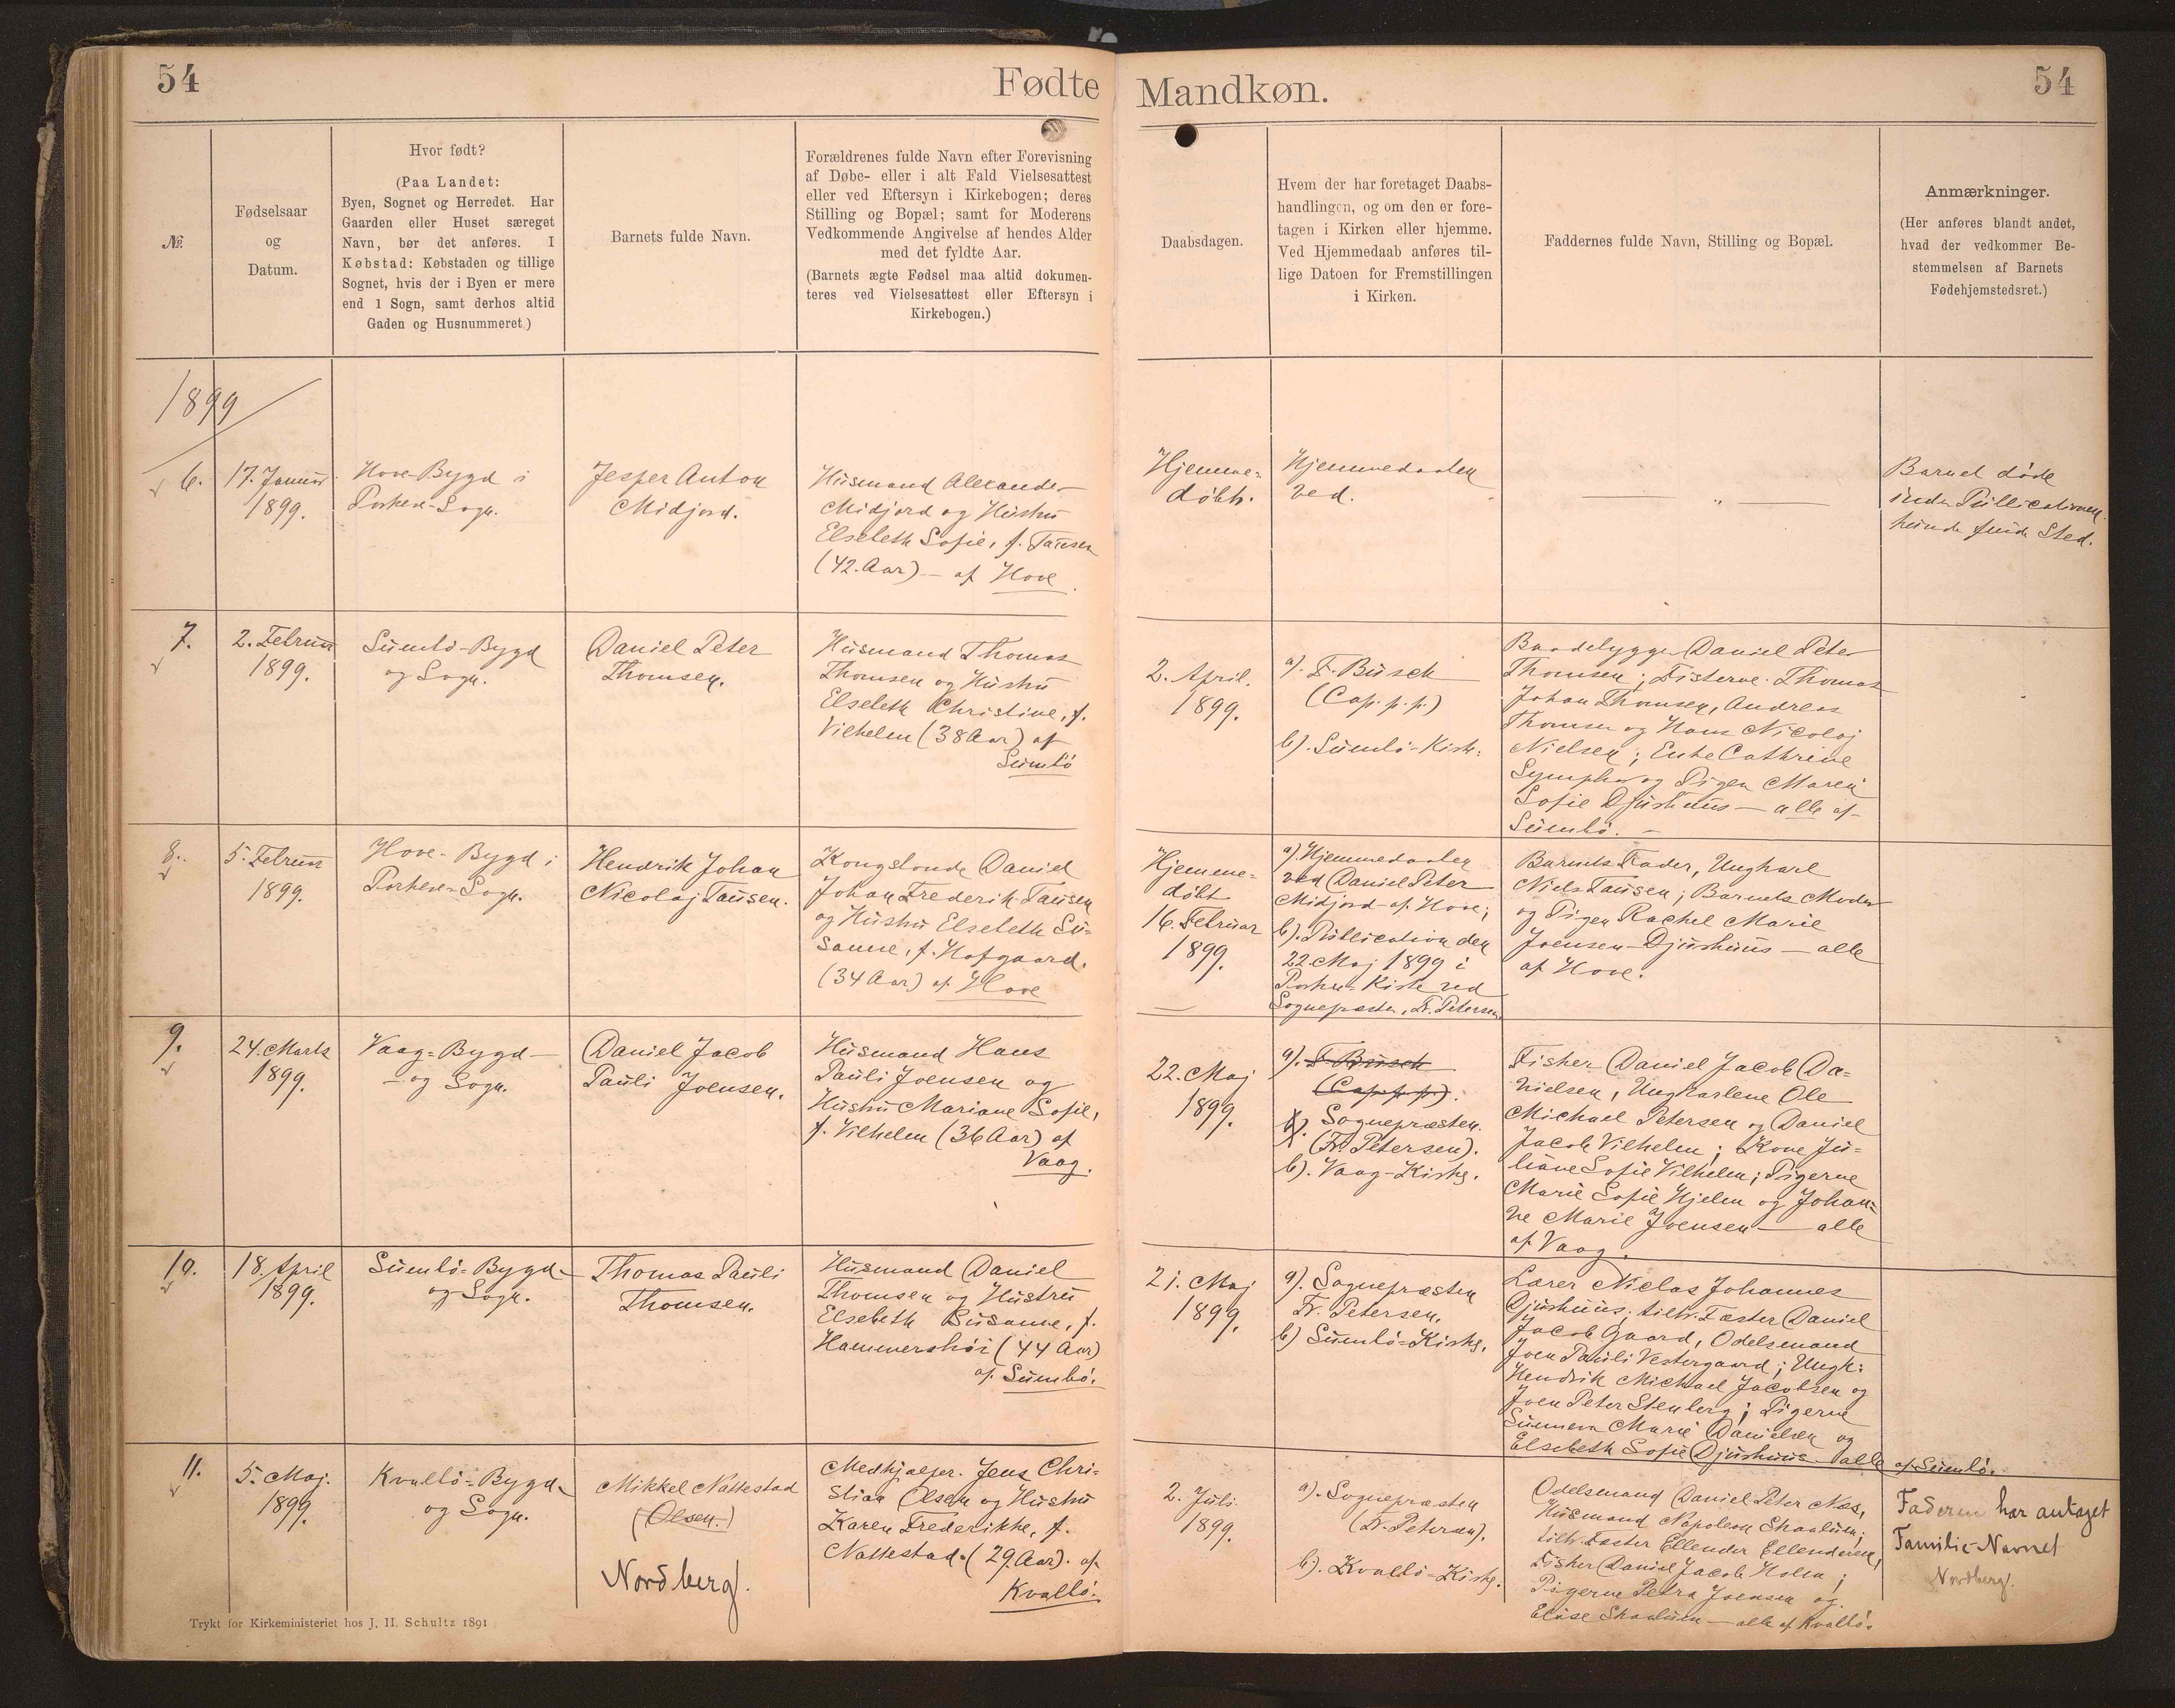 54
Fødte
Mandkøn.
54
№
Fødselsaar
og
Datum.
Hvor født?
(Paa Landet:
Byen, Sognet og Herredet. Har
Gaarden eller Huset særeget
Navn, bør det anføres. I
Købstad: Købstaden og tillige
Sognet, hvis der i Byen er mere
end 1 Sogn, samt derhos altid
Gaden og Husnummeret.)
Barnets fulde Navn.
Forældrenes fulde Navn efter Forevisning
af Døbe- eller i alt Fald Vielsesattest
eller ved Eftersyn i Kirkebogen; deres
Stilling og Bopæl; samt for Moderens
Vedkommende Angivelse af hendes Alder
med det fyldte Aar.
(Barnets ægte Fødsel maa altid dokumen-
teres ved Vielsesattest eller Eftersyn i
Kirkebogen.)
Daabsdagen.
Hvem der har foretaget Daabs-
handlingen, og om den er fore-
tagen i Kirken eller hjemme.
Ved Hjemmedaab anføres til-
lige Datoen for Fremstillingen
i Kirken.
Faddernes fulde Navn, Stilling og Bopæl.
Anmærkninger.
(Her anføres blandt andet,
hvad der vedkommer Be-
stemmelsen af Barnets
Fødehjemstedsret.)
1899
6.
17. Januar
1899.
Hove-Bygd i
Porkere-Sogn.
Jesper Anton
Midjord.
Husmand Alexander
Midjord og Hustru
Elsebeth Sofie, f. Tausen
(42. Aar) - af Hove
Hjemme=
døbt.
Hjemmedaaben
ved.
Barnet døde
inden Publicationen
kunde finde Sted.
7.
2. Februar
1899.
Sumbö-Bygd
og Sogn.
Daniel Peter
Thomsen.
Husmand Thomas
Thomsen og Hustru
Elsebeth Christine, f.
Vilhelm (38 Aar) af
Sumbö
2. April.
1899.
a). F. Busch
(Cap. p. p.)
b). Sumbö-Kirke
Baadebygger Daniel Peter
Thomsen; Fiskerne Thomas
Johan Thomsen, Andreas
Thomsen og Hans Nicolaj
Nielsen; Enke Cathrine
og Pigen Maren
Sofie Djurhuus - alle af
Sumbö. -
8.
5. Februar
1899.
Hove-Bygd i
Porkere-Sogn.
Hendrik Johan
Nicolaj Tausen.
Kongsbonde Daniel
Johan Frederik Tausen
og Hustru Elsebeth Su=
sanne, f. Hofgaard.
(34 Aar) af Hove
Hjemme=
døbt
16. Februar
1899.
a). Hjemmedaaben
ved Daniel Peter
Midjord af Hove;
b). Publication den
22. Maj 1899 i
Porkere Kirke ved
Sognepræsten, Fr. Petersen.
Barnets Fader, Ungkarl
Niels Tausen; Barnets Moder
og Pigen Rachel Marie
Joensen-Djurhuus - alle
af Hove.
9.
24. Marts
1899.
Vaag=Bygd-
- og Sogn.
Daniel Jacob
Pauli Joensen.
Husmand Hans
Pauli Joensen og
Hustru Mariane Sofie,
f. Vilhelm (36 Aar) af
Vaag.
22. Maj
1899.
a). F. Busch
(Cap. p. p.).
b). Sognepræsten.
(Fr. Petersen).
b). Vaag-Kirke.
Fisker Daniel Jacob Da=
nielsen, Ungkarlene Ole
Michael Petersen og Daniel
Jacob Vilhelm; Kone Ju=
liane Sofie Vilhelm; Pigerne
Marie Sofie Hjelm og Johan=
ne Marie Joensen - alle
af Vaag.
10.
18. April
1899.
Sumbö-Bygd-
og Sogn.
Thomas Pauli
Thomsen.
Husmand Daniel
Thomsen og Hustru
Elsebeth Susanne, f.
Hammershöi (44 Aar)
af Sumbö.
21. Maj
1899.
a). Sognepræsten
Fr. Petersen.
b) Sumbö=Kirke.
Lærer Niclas Johannes
Djurhuus; tilfor. Fæster Daniel
Jacob Gaard, Odelsmand
Joen Pauli Vestergaard; Ungk:
Hendrik Michael Jacobsen og
Joen Peter Stenberg; Pigerne
Sunneva Marie Danielsen og
Elsebeth Sofie Djurhuus - alle af Sumbö.
11.
5. Maj.
1899.
Kvalbö-Bygd-
og Sogn.
Mikkel Nattestad
(Olsen.)
Nordberg.
Medhjælper. Jens Chri-
stian Olsen og Hustru
Karen Frederikke, f.
Nattestad. (29 Aar). af
Kvalbö.
2. Juli
1899.
a). Sognepræsten
(Fr. Petersen).
b). Kvalbö-Kirke.
Odelsmand Daniel Peter Næs,
Husmand Napoleon Skaalum;
Fæster Ellender Ellendersen,
Fisker Daniel Jacob Holm;
Pigerne Petra Joensen og
Elise Skaalum - alle af Kvalbö.
Faderen har antaget
Familie-Navnet
Nordberg.
Trykt for Kirkeministeriet hos J. H. Schultz 1891